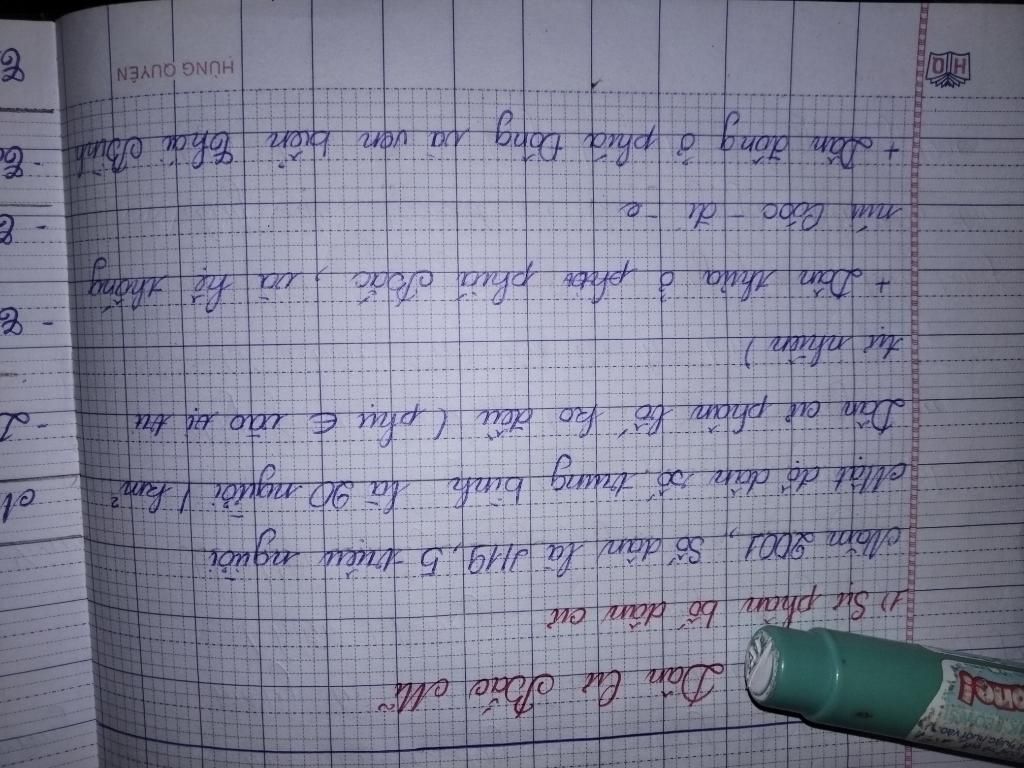 Dân cư Bắc Mĩ
1) Sự phân bố dân cư
Năm 2001, số dân là 419,5 triệu người
Mật độ dân số trung bình là 20 người / km²
Dân cư phân bố ko đều ( phụ ∈ vào vị trí
tự nhiên )
+ Dân thưa ở phía Bắc, và hệ thống
núi Cooc - di - e
+ Dân đông ở phía Đông và ven biển Thái Bình
HÙNG QUYÊN
HQ